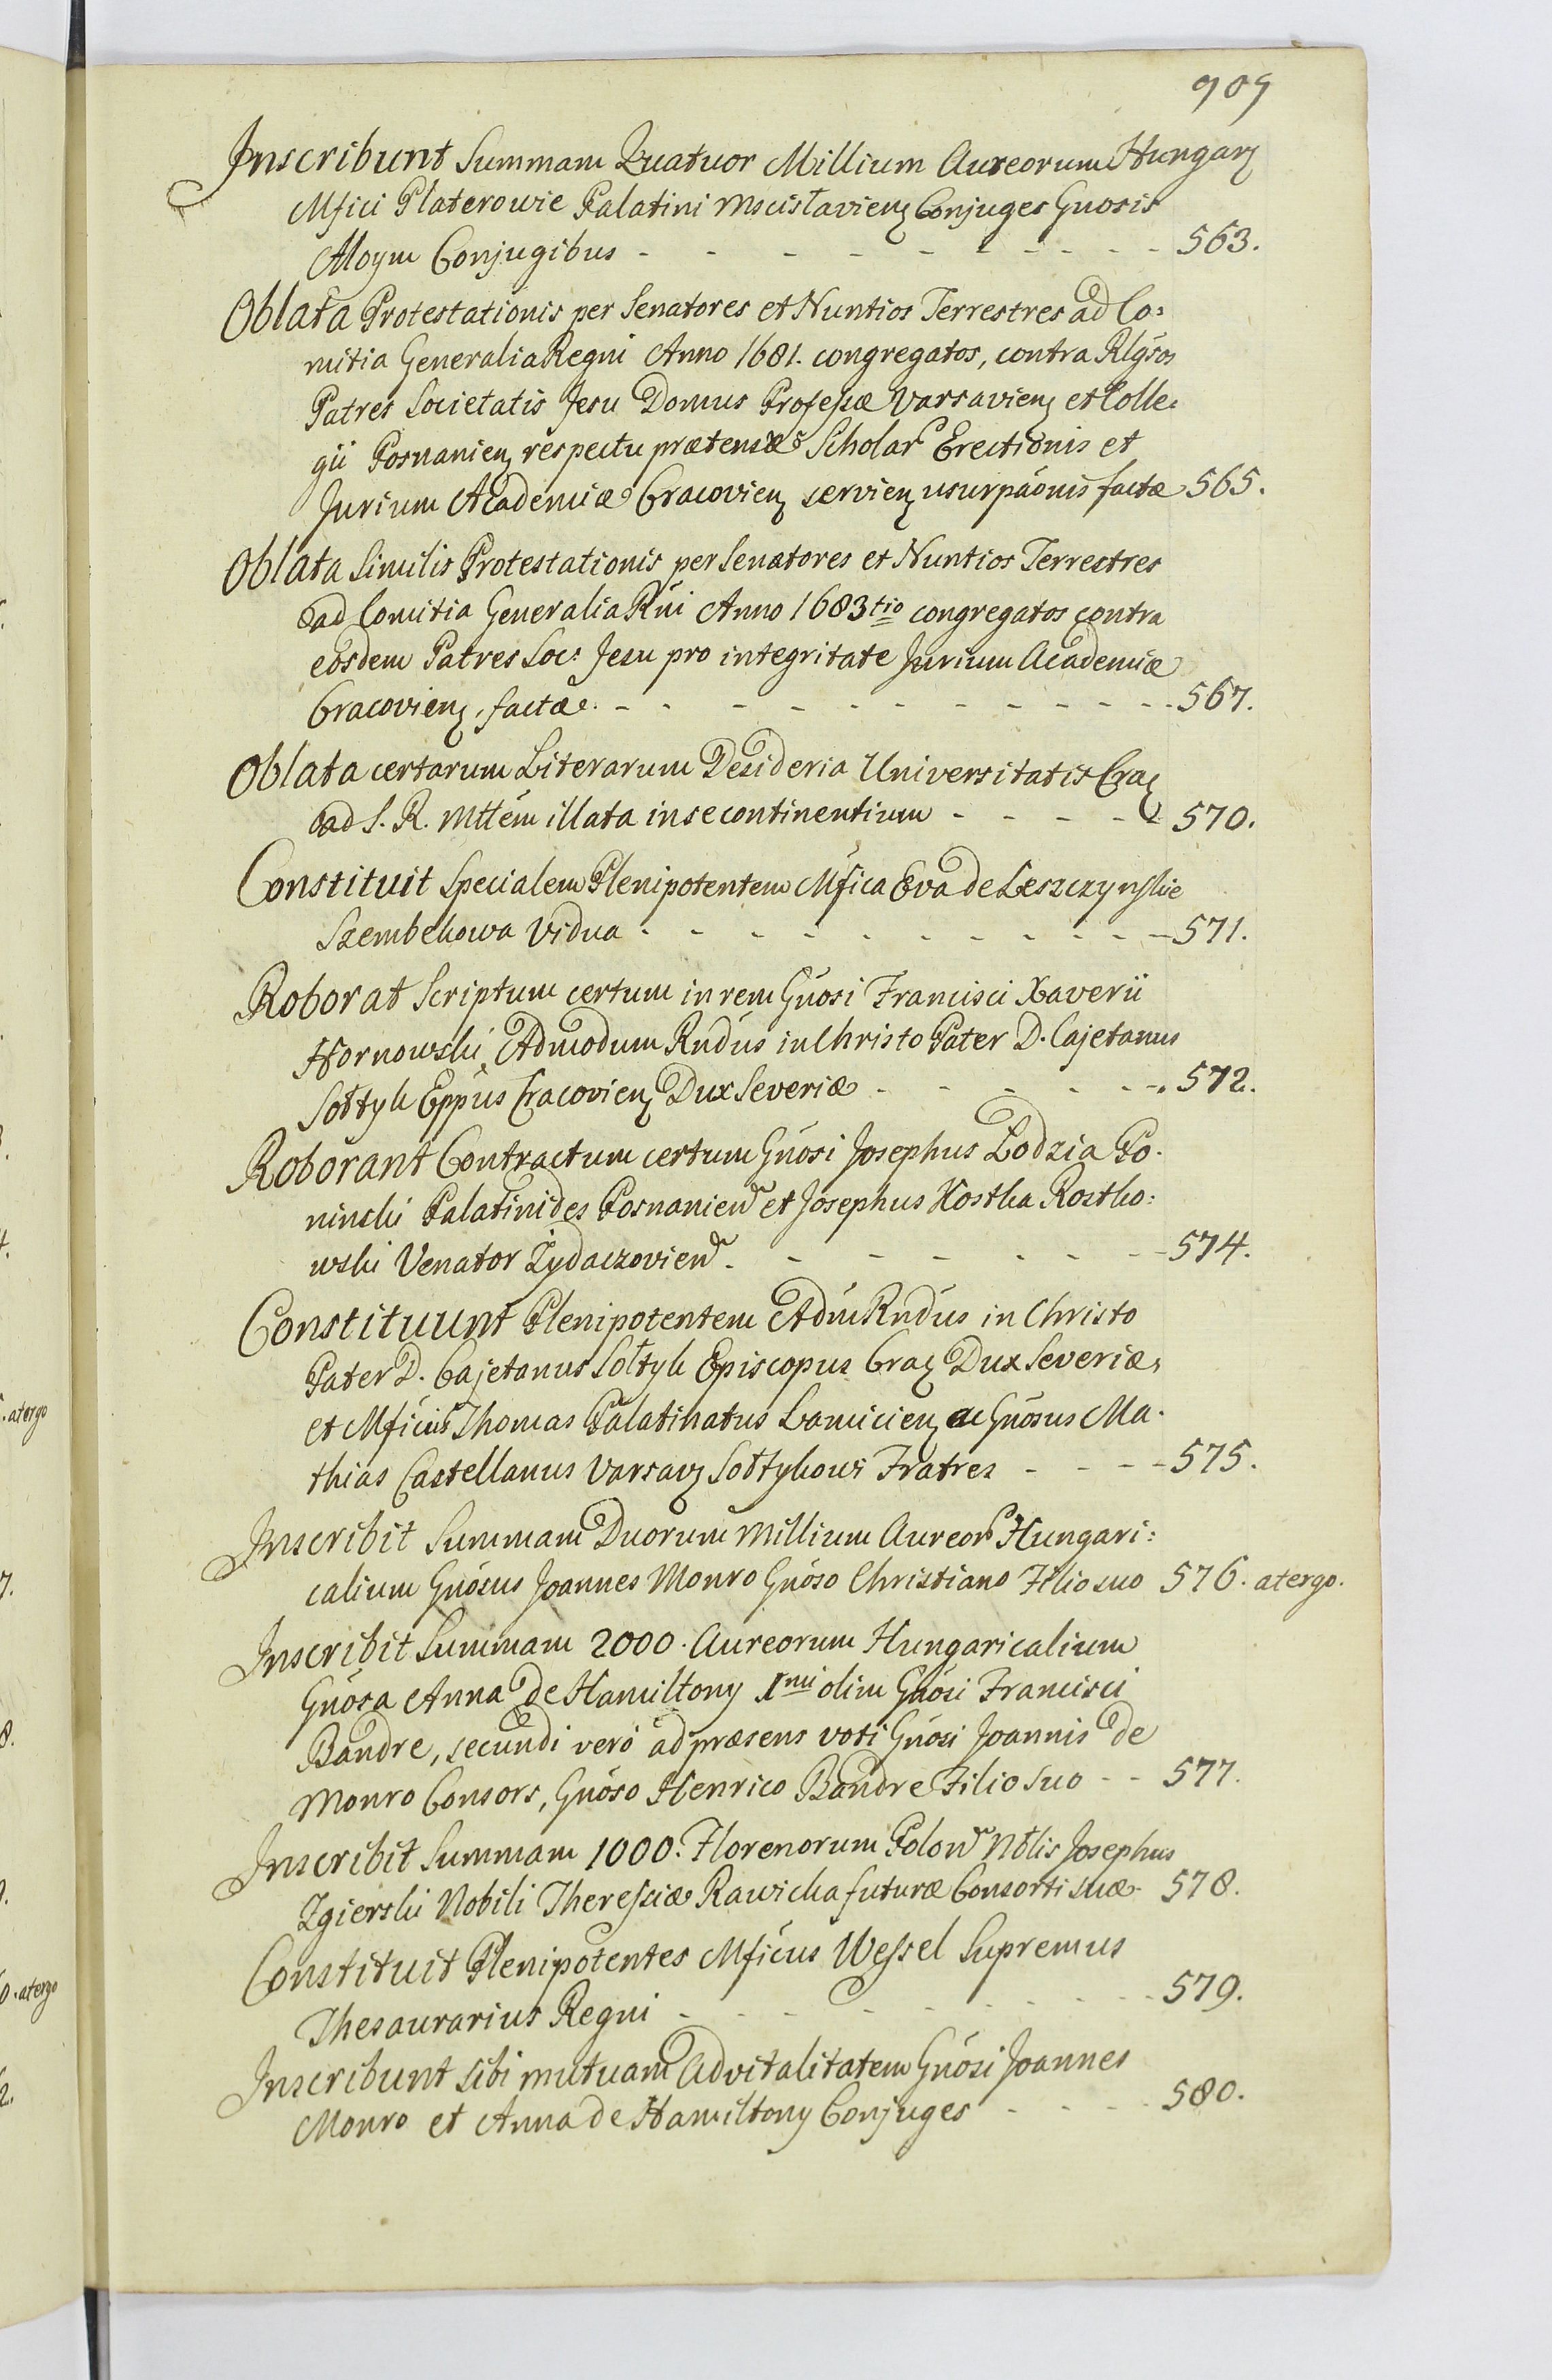 909
Inscribunt Summam Quatuor Millium Aureorum Hungarꝫ
Mfici Platerowie Palatini Mscisłavienꝫ Conjuges Gnosis
Aloym Conjugibus - - - - - - - - - 563.
Oblata Protestationis per Senatores et Nuntios Terrestres ad Co:
mitia Generalia Regni Anno 1681. congregatos, contra Rlgsos
Patres Societatis Jesu Domus Professæ Varsavienꝫ et Colle:
gii Posnanienꝫ respectu prætensæ Scholar Erectionis et
Jurium Academiæ Cracovienꝫ servienꝫ usurpaónis factæ 565.
Oblata Similis Protestationis per Senatores et Nuntios Terrestres
ad Comitia Generalia Rńi Anno 1683tio congregatos contra
eosdem Patres Soc: Jesu pro integritate Jurium Academiæ
Cracovienꝫ, factæ. - - - - - - - - - - 567.
Oblata certarum Literarum Desideria Universitatis Craꝫ
ad S. R. Mttém illata in se continentium - - - - 570.
Constituit Specialem Plenipotentem Mfica Eva de Leszczynskie
Szembekowa Vidua - - - - - - - - - - 571.
Roborat Scriptum certum in rem Gnósi Francisci Xaverii
Hornowski, Admodum Rndús in Christo Pater D. Cajetanus
Sołtyk Eppús Cracovienꝫ Dux Severiæ - - - - - - 572.
Roborant Contractum certum Gnósi Josephus Lodzia Po.
ninski Palatinides Posnanien et Josephus Kostka Rostko:
wski Venator Żydaczovien - - - - - - 574.
Constituunt Plenipotentem Adm Rndús in Christo
Pater D. Cajetanus Sołtyk Episcopus Craꝫ Dux Severiæ,
et Mficus Thomas Palatinatus Lancicienꝫ ac Gnósus Ma.
thias Castellanus Varsavꝫ Sołtykowi Fratres - - - - 575.
Inscribit Summam Duorum Millium Aureor Hungari:
calium Gnósus Joannes Monro Gnóso Christiano Filio suo 576. atergo.
Inscribit Summam 2000. Aureorum Hungaricalium
Gnósa Anna de Hamiltony 1mi olim Gnósi Francisci
Bandre, secundi veró ad præsens voti Gnósi Joannis de
Monro Consors, Gnóso Henrico Bandre Filio suo - - 577.
Inscribit Summam 1000. Florenorum Polon Nblis Josephus
Zgierski Nobili Theressiæ Rawicka futuræ Consorti suæ 578.
Constituit Plenipotentes Mficus Wessel Supremus
Thesaurarius Regni - - - - - - - - 579.
Inscribunt sibi mutuam Advitalitatem Gnósi Joannes
Monro et Anna de Hamiltony Conjuges - - - - 580.